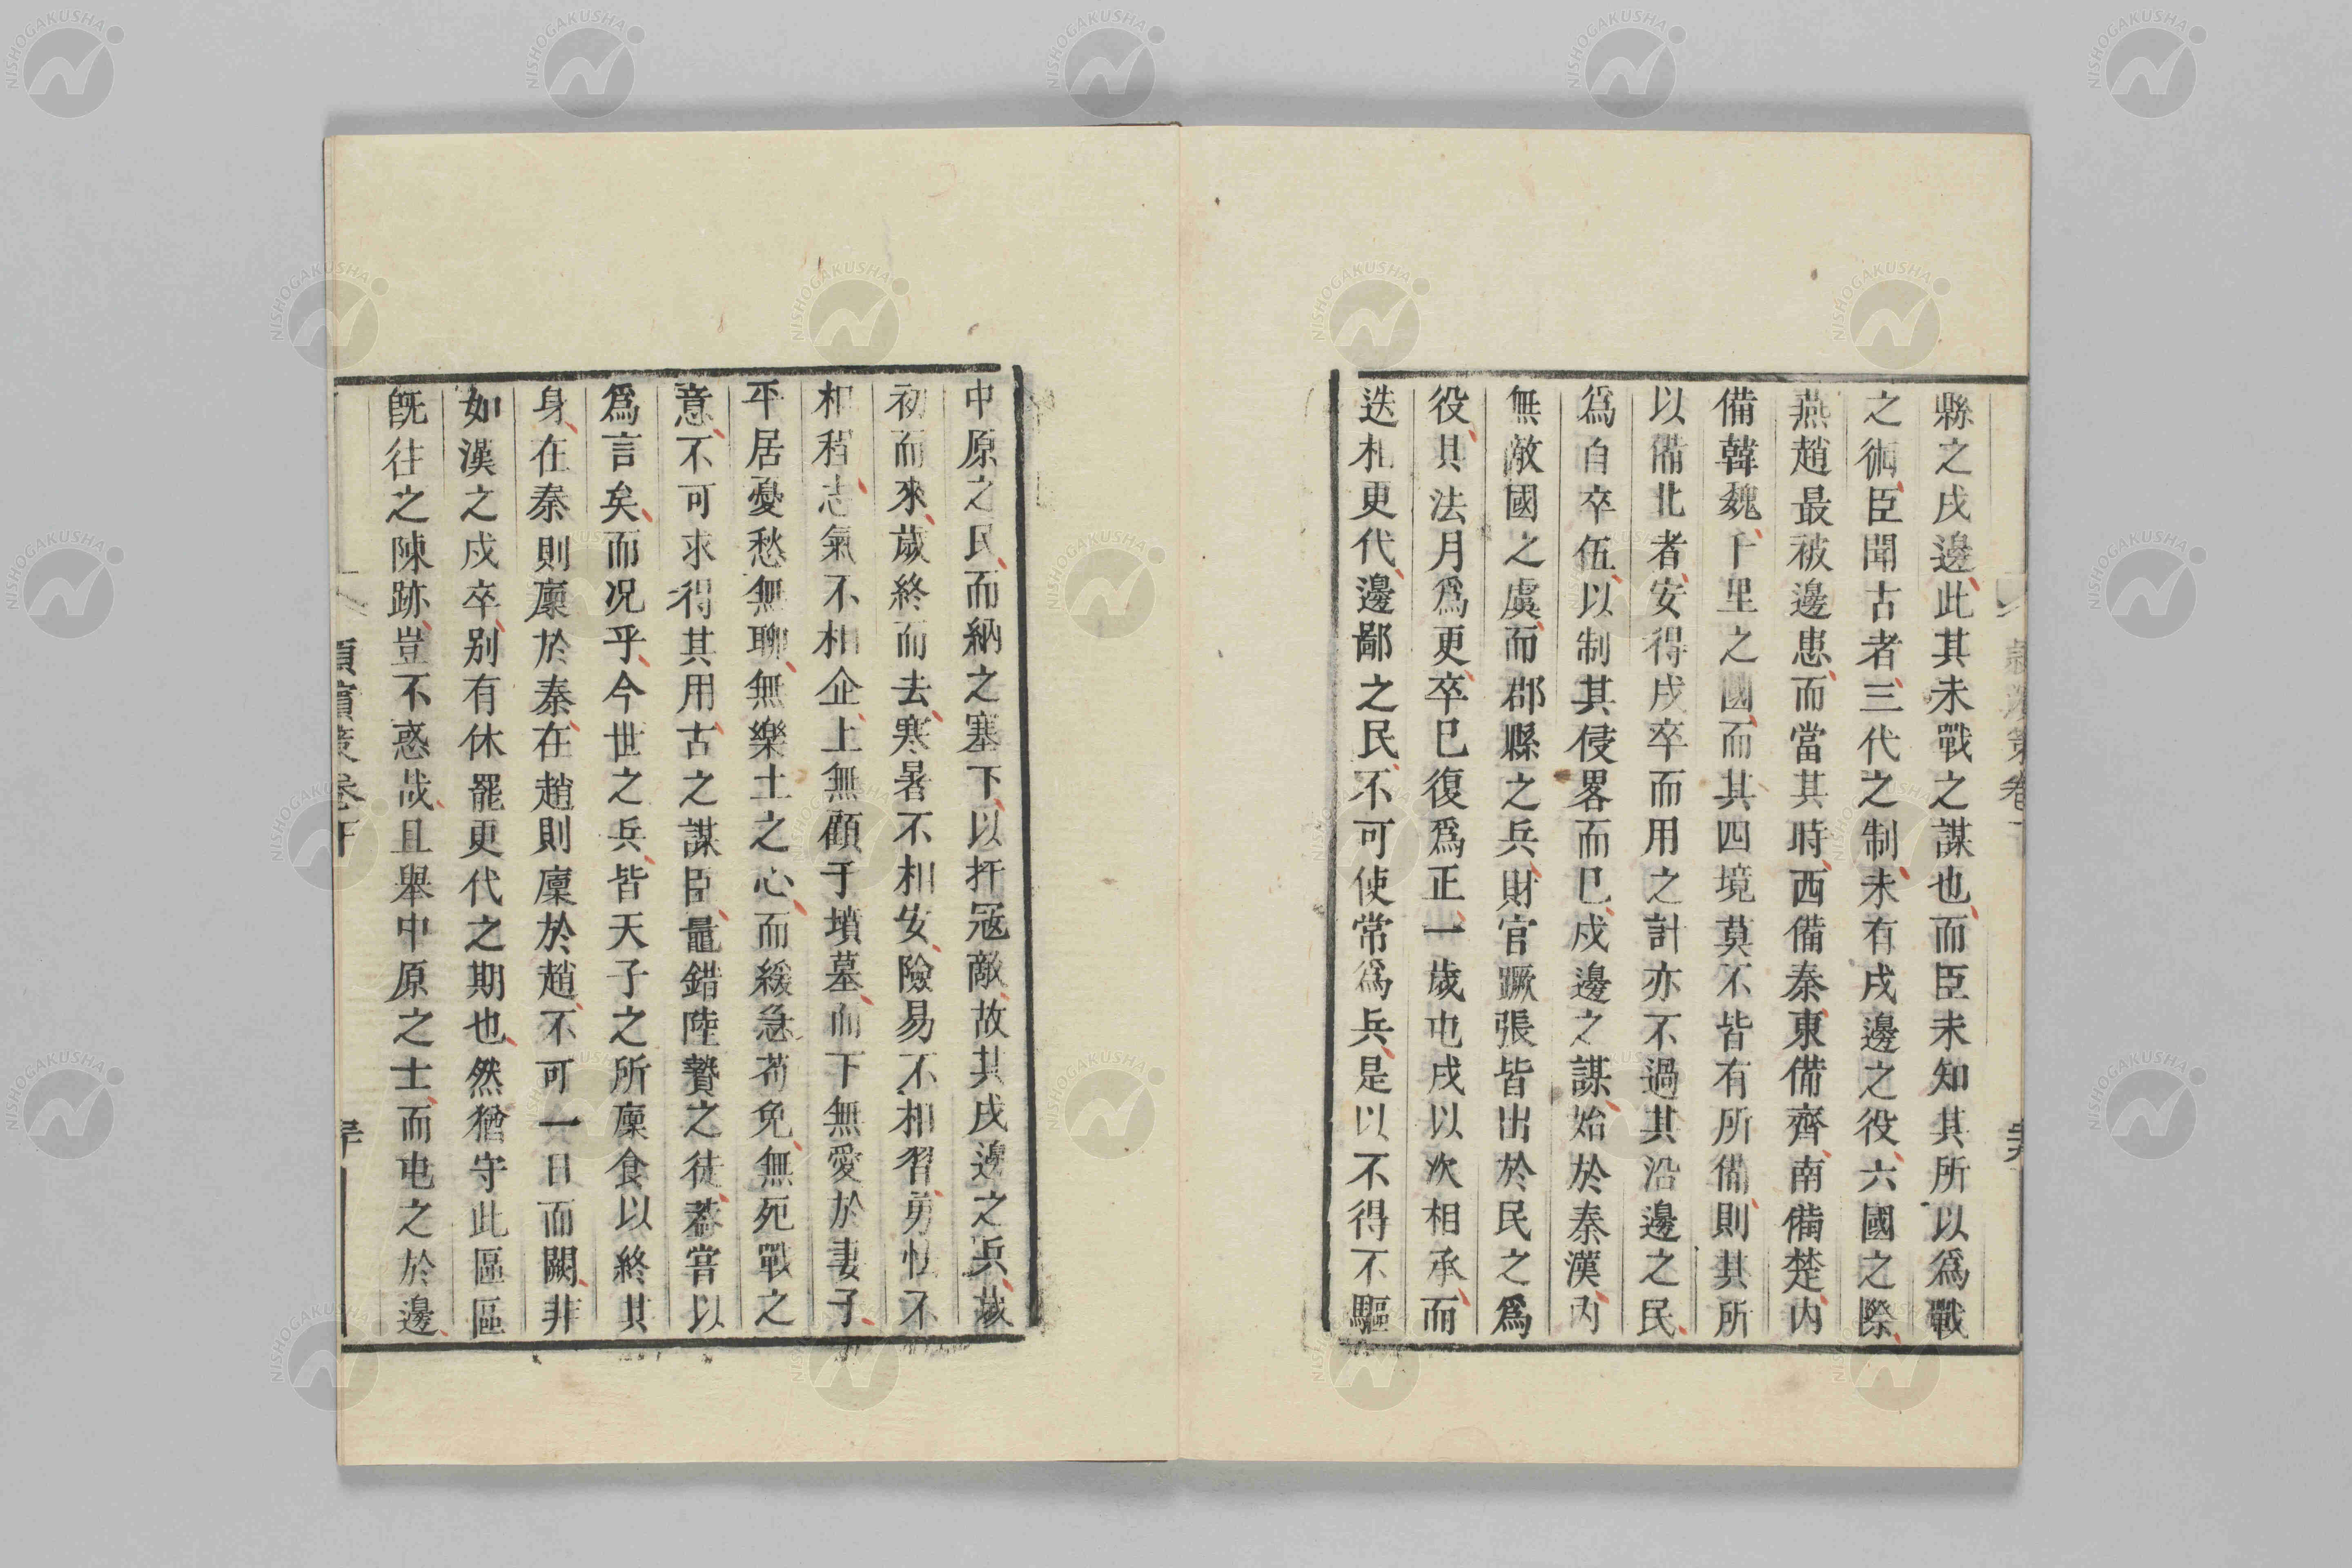 縣之戍邊此其未戰之謀也而臣未知其所以爲戰
之術臣聞古者三代之制未有戍邊之役六國之際
燕趙最被邊患而當其時西備秦東備齊南備楚内
備韓魏千里之國而其四境莫不皆有所備則其所
以備北者安得戍卒而用之計亦不過其沿邊之民
爲自卒伍以制其侵畧而已戍邊之謀始於秦漢内
無敵國之虞而郡縣之兵財官蹶張皆出於民之爲
役其法月爲更卒已復爲正一歲屯戍以次相承而
迭相更代邊鄙之民不可使常爲兵是以不得不驅
中原之民而納之塞下以扞冦敵故其戍邊之兵歲
初而來歲終而去寒暑不相安險易不相習勇怯不
相程志氣不相企上無顧于墳墓而下無愛於妻子
平居憂愁無聊無樂土之心而緩急苟免無死戰之
意不可求得其用古之謀臣鼂錯陸贄之徒葢嘗以
爲言矣而况乎今世之兵皆天子之所廩食以終其
身在秦則廩於秦在趙則廩於趙不可一日而闕非
如漢之戍卒别有休罷更代之期也然猶守此區區
旣往之陳跡豈不惑哉且舉中原之士而屯之於邊
潁濱策卷下
NISHOGAKUSHA